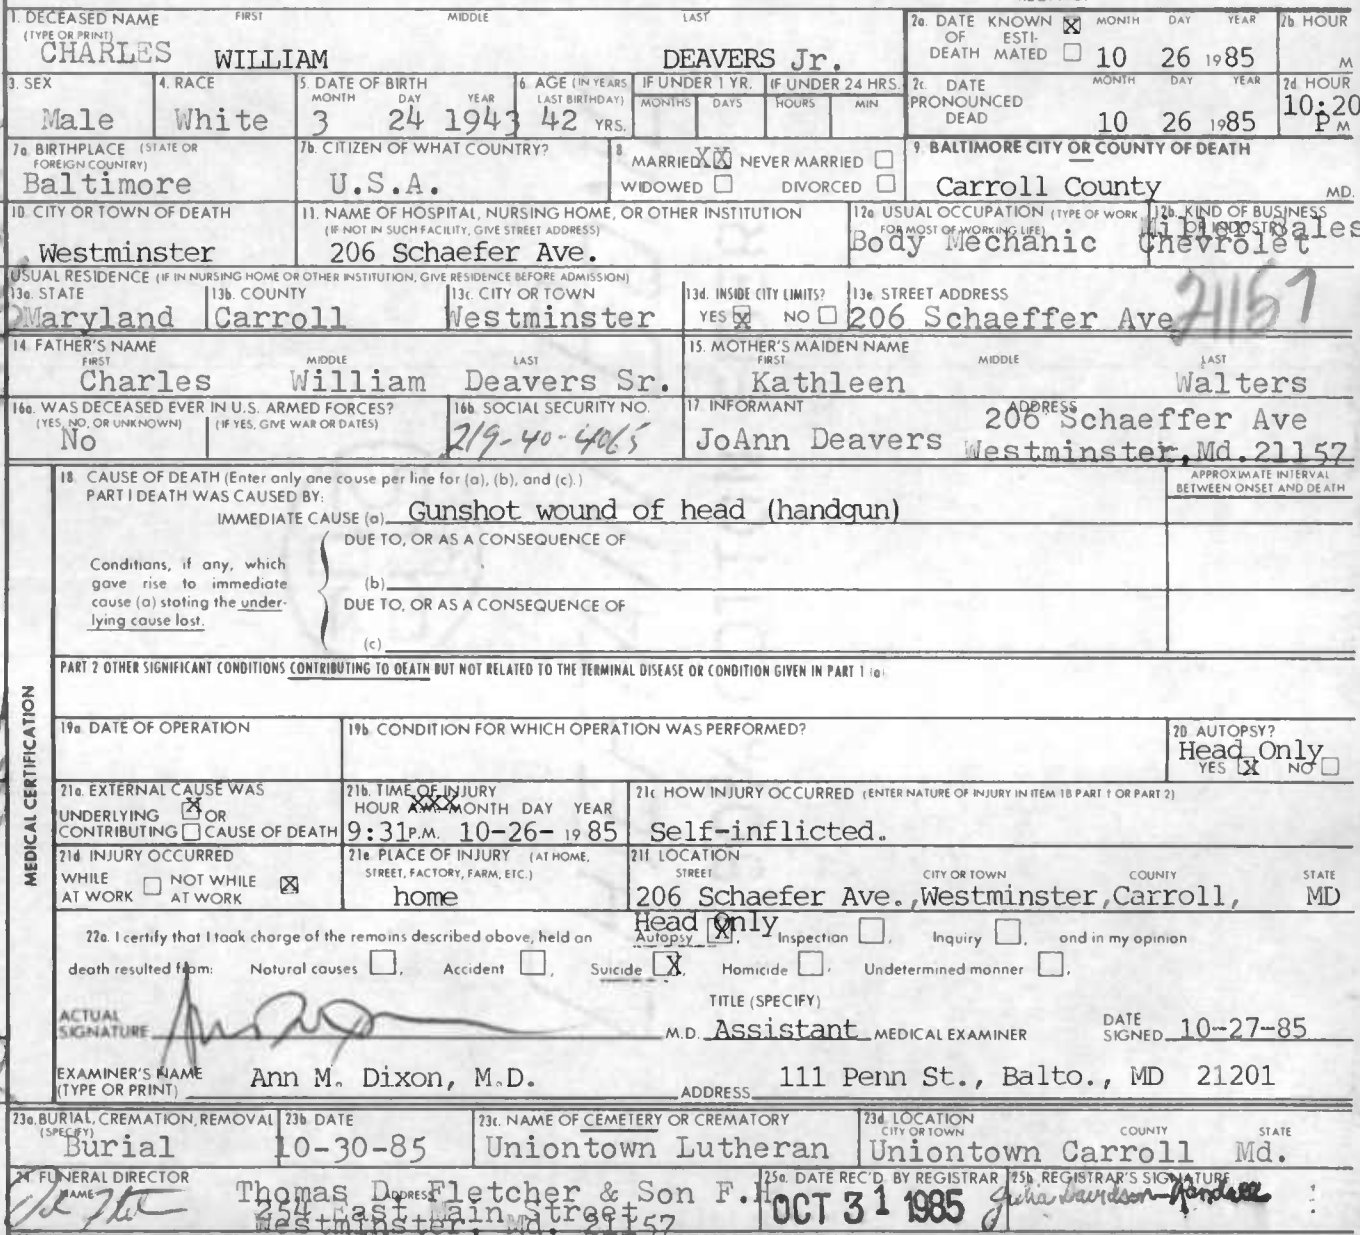 1. DECEASED NAME (TYPE OR PRINT) FIRST MIDDLE LAST
CHARLES WILLIAM DEAVERS Jr.
2a. DATE OF DEATH KNOWN X ESTIMATED MONTH DAY YEAR
10 26 1985
2b. HOUR M
3. SEX
Male
4. RACE
White
5. DATE OF BIRTH MONTH DAY YEAR
3 24 1943
6. AGE (IN YEARS LAST BIRTHDAY)
42 YRS.
IF UNDER 1 YR. MONTHS DAYS
IF UNDER 24 HRS. HOURS MIN
2c. DATE PRONOUNCED DEAD MONTH DAY YEAR
10 26 1985
2d HOUR
10:20 P M
7a. BIRTHPLACE (STATE OR FOREIGN COUNTRY)
Baltimore
7b. CITIZEN OF WHAT COUNTRY?
U.S.A.
8 MARRIED XX NEVER MARRIED
WIDOWED DIVORCED
9. BALTIMORE CITY OR COUNTY OF DEATH
Carroll County MD.
10. CITY OR TOWN OF DEATH
Westminster
11. NAME OF HOSPITAL, NURSING HOME, OR OTHER INSTITUTION
(IF NOT IN SUCH FACILITY, GIVE STREET ADDRESS)
206 Schaefer Ave.
12a USUAL OCCUPATION (TYPE OF WORK FOR MOST OF WORKING LIFE)
Body Mechanic
12b. KIND OF BUSINESS OR INDUSTRY
Sales
Chevrolet
USUAL RESIDENCE (IF IN NURSING HOME OR OTHER INSTITUTION, GIVE RESIDENCE BEFORE ADMISSION)
13a. STATE
Maryland
13b. COUNTY
Carroll
13c. CITY OR TOWN
Westminster
13d. INSIDE CITY LIMITS?
YES X NO
13e. STREET ADDRESS
206 Schaeffer Ave
21157
14. FATHER'S NAME FIRST MIDDLE LAST
Charles William Deavers Sr.
15. MOTHER'S MAIDEN NAME FIRST MIDDLE LAST
Kathleen Walters
16a. WAS DECEASED EVER IN U.S. ARMED FORCES?
(YES, NO, OR UNKNOWN) (IF YES, GIVE WAR OR DATES)
No
16b. SOCIAL SECURITY NO.
219-40-4065
17. INFORMANT ADDRESS
JoAnn Deavers 206 Schaeffer Ave
Westminster, Md. 21157
MEDICAL CERTIFICATION
18. CAUSE OF DEATH (Enter only one cause per line for (a), (b), and (c).)
PART I DEATH WAS CAUSED BY:
IMMEDIATE CAUSE (a) Gunshot wound of head (handgun)
APPROXIMATE INTERVAL BETWEEN ONSET AND DEATH
DUE TO, OR AS A CONSEQUENCE OF
Conditions, if any, which gave rise to immediate cause (a) stating the underlying cause last.
(b)
DUE TO, OR AS A CONSEQUENCE OF
(c)
PART 2 OTHER SIGNIFICANT CONDITIONS CONTRIBUTING TO DEATH BUT NOT RELATED TO THE TERMINAL DISEASE OR CONDITION GIVEN IN PART 1 (a)
19a. DATE OF OPERATION
19b. CONDITION FOR WHICH OPERATION WAS PERFORMED?
20. AUTOPSY?
Head Only
YES X NO
21a. EXTERNAL CAUSE WAS
UNDERLYING X OR
CONTRIBUTING CAUSE OF DEATH
21b. TIME OF INJURY
HOUR A.M. MONTH DAY YEAR
9:31 P.M. 10-26- 1985
21c HOW INJURY OCCURRED (ENTER NATURE OF INJURY IN ITEM 18 PART 1 OR PART 2)
Self-inflicted.
21d INJURY OCCURRED
WHILE AT WORK NOT WHILE AT WORK X
21e PLACE OF INJURY (AT HOME, STREET, FACTORY, FARM, ETC.)
home
21f LOCATION STREET CITY OR TOWN COUNTY STATE
206 Schaefer Ave., Westminster, Carroll, MD
Head Only
22a. I certify that I took charge of the remains described above, held an Autopsy X, Inspection , Inquiry , and in my opinion
death resulted from: Natural causes , Accident , Suicide X, Homicide , Undetermined manner .
TITLE (SPECIFY)
ACTUAL SIGNATURE M.D. Assistant MEDICAL EXAMINER DATE SIGNED 10-27-85
EXAMINER'S NAME (TYPE OR PRINT) Ann M. Dixon, M.D. ADDRESS 111 Penn St., Balto., MD 21201
23a. BURIAL, CREMATION, REMOVAL (SPECIFY)
Burial
23b. DATE
10-30-85
23c. NAME OF CEMETERY OR CREMATORY
Uniontown Lutheran
23d. LOCATION CITY OR TOWN COUNTY STATE
Uniontown Carroll Md.
24. FUNERAL DIRECTOR NAME ADDRESS
Thomas D. Fletcher & Son F.H.
254 East Main Street
Westminster, Md. 21157
25a. DATE REC'D. BY REGISTRAR
OCT 31 1985
25b. REGISTRAR'S SIGNATURE
Julia Davidson-Randall